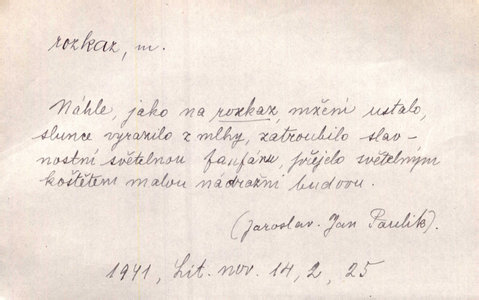 rozkaz, m.
Náhle, jako na rozkaz, mžení ustalo,
slunce vyrazilo z mlhy, zatroubilo slav-
nostní světelnou fanfáru, přejelo světelným
koštětem malou nádražní budovu.
(Jaroslav Jan Paulík).
1941, Lit. nov. 14, 2, 25